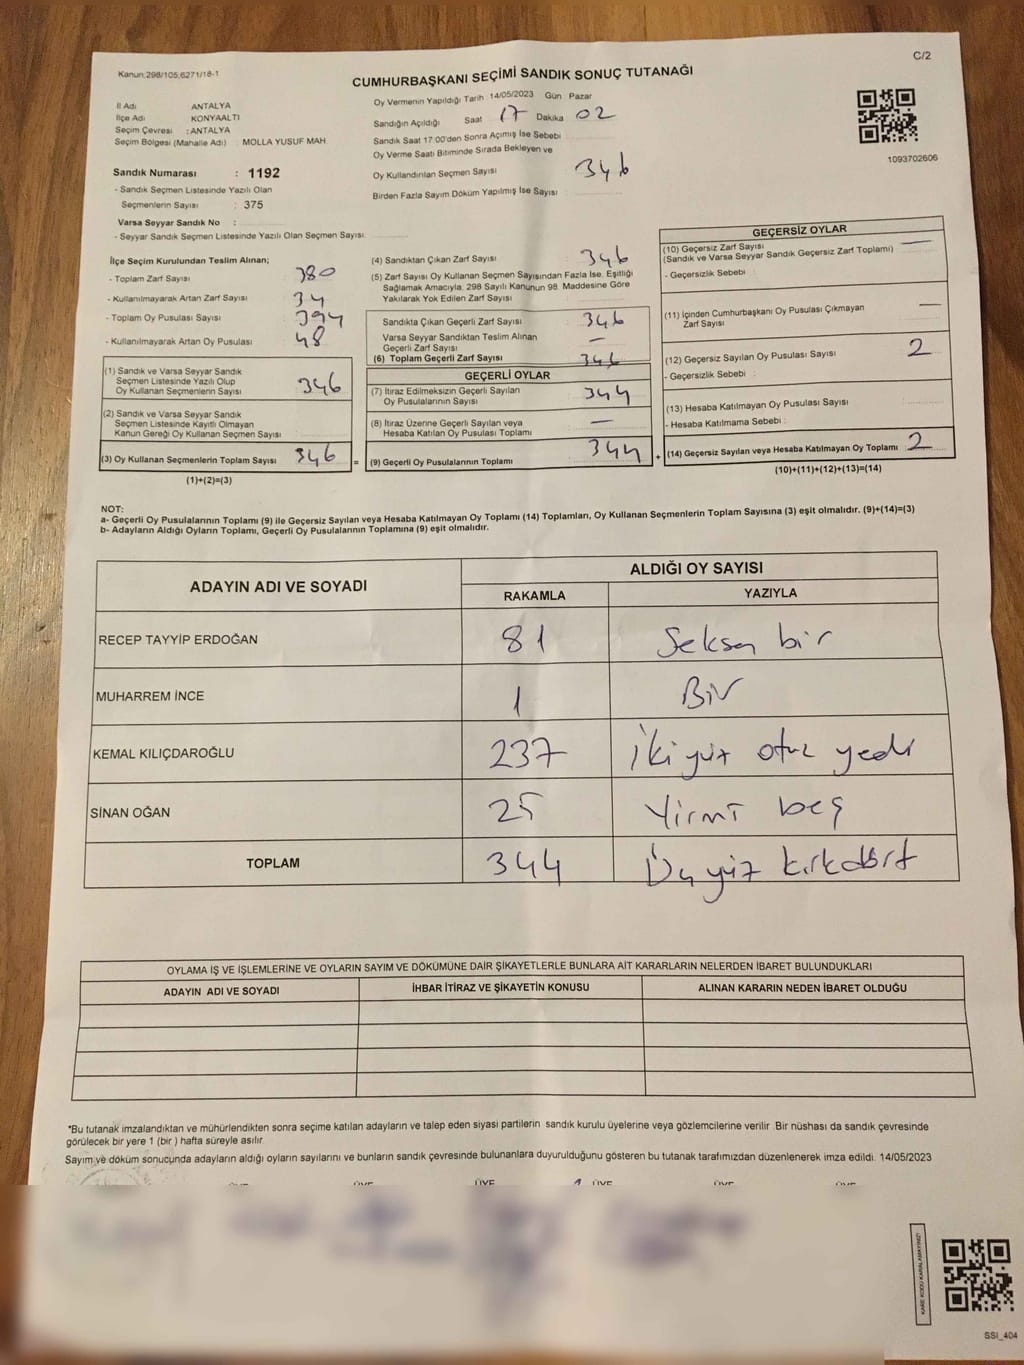 Kanun;298/105;6271/18-1
C/2
CUMHURBAŞKANI SEÇİMİ SANDIK SONUÇ TUTANAĞI
İl Adı ANTALYA
İlçe Adı KONYAALTI
Seçim Çevresi : ANTALYA
Seçim Bölgesi (Mahalle Adı) : MOLLA YUSUF MAH.
Sandık Numarası : 1192
- Sandık Seçmen Listesinde Yazılı Olan
Seçmenlerin Sayısı : 375
Varsa Seyyar Sandık No :
- Seyyar Sandık Seçmen Listesinde Yazılı Olan Seçmen Sayısı:
Oy Vermenin Yapıldığı Tarih 14/05/2023 Gün Pazar
Sandığın Açıldığı Saat 17 Dakika 02
Sandık Saat 17:00'den Sonra Açımış İse Sebebi
Oy Verme Saati Bitiminde Sırada Bekleyen ve
Oy Kullandırılan Seçmen Sayısı 346
Birden Fazla Sayım Döküm Yapılmış İse Sayısı
1093702606
İlçe Seçim Kurulundan Teslim Alınan;
- Toplam Zarf Sayısı 380
- Kullanılmayarak Artan Zarf Sayısı 34
- Toplam Oy Pusulası Sayısı 394
- Kullanılmayarak Artan Oy Pusulası 48
(1) Sandık ve Varsa Seyyar Sandık
Seçmen Listesinde Yazılı Olup
Oy Kullanan Seçmenlerin Sayısı 346
(2) Sandık ve Varsa Seyyar Sandık
Seçmen Listesinde Kayıtlı Olmayan
Kanun Gereği Oy Kullanan Seçmen Sayısı
(3) Oy Kullanan Seçmenlerin Toplam Sayısı 346 =
(1)+(2)=(3)
(4) Sandıktan Çıkan Zarf Sayısı 346
(5) Zarf Sayısı Oy Kullanan Seçmen Sayısından Fazla İse, Eşitliği
Sağlamak Amacıyla; 298 Sayılı Kanunun 98. Maddesine Göre
Yakılarak Yok Edilen Zarf Sayısı
Sandıkta Çıkan Geçerli Zarf Sayısı 346
Varsa Seyyar Sandıktan Teslim Alınan
Geçerli Zarf Sayısı —
(6) Toplam Geçerli Zarf Sayısı 346
GEÇERLİ OYLAR
(7) İtiraz Edilmeksizin Geçerli Sayılan
Oy Pusulalarının Sayısı 344
(8) İtiraz Üzerine Geçerli Sayılan veya
Hesaba Katılan Oy Pusulası Toplamı —
(9) Geçerli Oy Pusulalarının Toplamı 344 +
GEÇERSİZ OYLAR
(10) Geçersiz Zarf Sayısı —
(Sandık ve Varsa Seyyar Sandık Geçersiz Zarf Toplamı)
- Geçersizlik Sebebi :
(11) İçinden Cumhurbaşkanı Oy Pusulası Çıkmayan —
Zarf Sayısı
(12) Geçersiz Sayılan Oy Pusulası Sayısı 2
- Geçersizlik Sebebi :
(13) Hesaba Katılmayan Oy Pusulası Sayısı
- Hesaba Katılmama Sebebi :
(14) Geçersiz Sayılan veya Hesaba Katılmayan Oy Toplamı 2
(10)+(11)+(12)+(13)=(14)
NOT:
a- Geçerli Oy Pusulalarının Toplamı (9) ile Geçersiz Sayılan veya Hesaba Katılmayan Oy Toplamı (14) Toplamları, Oy Kullanan Seçmenlerin Toplam Sayısına (3) eşit olmalıdır. (9)+(14)=(3)
b- Adayların Aldığı Oyların Toplamı, Geçerli Oy Pusulalarının Toplamına (9) eşit olmalıdır.
ADAYIN ADI VE SOYADI
ALDIĞI OY SAYISI
RAKAMLA YAZIYLA
RECEP TAYYİP ERDOĞAN 81 Seksen bir
MUHARREM İNCE 1 Bir
KEMAL KILIÇDAROĞLU 237 İkiyüz otuz yedi
SİNAN OĞAN 25 Yirmi beş
TOPLAM 344 Üçyüz kırkdört
OYLAMA İŞ VE İŞLEMLERİNE VE OYLARIN SAYIM VE DÖKÜMÜNE DAİR ŞİKAYETLERLE BUNLARA AİT KARARLARIN NELERDEN İBARET BULUNDUKLARI
ADAYIN ADI VE SOYADI İHBAR İTİRAZ VE ŞİKAYETİN KONUSU ALINAN KARARIN NEDEN İBARET OLDUĞU
*Bu tutanak imzalandıktan ve mühürlendikten sonra seçime katılan adayların ve talep eden siyasi partilerin sandık kurulu üyelerine veya gözlemcilerine verilir. Bir nüshası da sandık çevresinde
görülecek bir yere 1 (bir) hafta süreyle asılır.
Sayım ve döküm sonucunda adayların aldığı oyların sayılarını ve bunların sandık çevresinde bulunanlara duyurulduğunu gösteren bu tutanak tarafımızdan düzenlenerek imza edildi. 14/05/2023
ÜYE ÜYE ÜYE ÜYE ÜYE ÜYE
KARE KODU KARALAMAYINIZ!
SSI_404